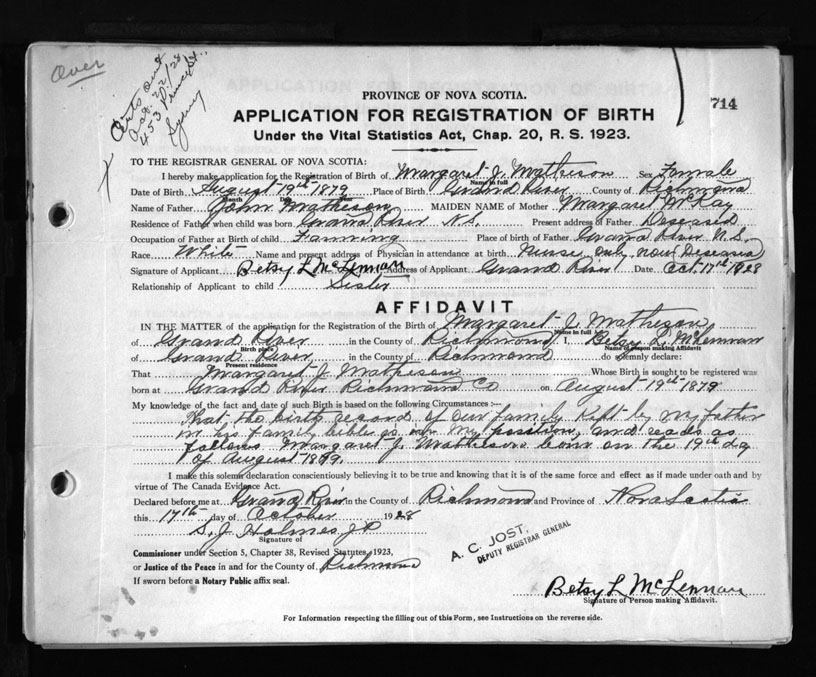 Over
Certs out
Oct. 22/28
453 Prince St.,
Sydney
PROVINCE OF NOVA SCOTIA.
714
APPLICATION FOR REGISTRATION OF BIRTH
Under the Vital Statistics Act, Chap. 20, R. S. 1923.
TO THE REGISTRAR GENERAL OF NOVA SCOTIA:
I hereby make application for the Registration of Birth of Margaret J. Matheson Sex Female
Name in full
Date of Birth August 19th 1879 Place of Birth Grand River County of Richmond
Month Day
Name of Father John Matheson MAIDEN NAME of Mother Margaret McKay
Residence of Father when child was born Grand River N.S. Present address of Father Deseased
Occupation of Father at Birth of child Farming Place of birth of Father Grand River N.S.
Race White Name and present address of Physician in attendance at birth Nurse only now Deseased
Signature of Applicant Betsy L McLennan Address of Applicant Grand River Date Oct 17th 1928
Relationship of Applicant to child Sister
AFFIDAVIT
IN THE MATTER of the application for the Registration of the Birth of Margaret J. Matheson
Name in full
of Grand River in the County of Richmond I, Betsy L. McLennan
Birth place Name of person making Affidavit
of Grand River in the County of Richmond do solemnly declare:
Present residence
That Margaret J. Matheson Whose Birth is sought to be registered was
born at Grand River Richmond Co on August 19th 1879
My knowledge of the fact and date of such Birth is based on the following Circumstances :—
That, the birth record of our family kept by my father
in his family bible is in my position, and reads as
follows Margaret J. Matheson born on the 19th day
of August 1879.
I make this solemn declaration conscientiously believing it to be true and knowing that it is of the same force and effect as if made under oath and by
virtue of The Canada Evidence Act.
Declared before me at Grand River in the County of Richmond and Province of Nova Scotia
this 17th day of October 1928
S. J. Holmes JP
Signature of
Commissioner under Section 5, Chapter 38, Revised Statutes, 1923,
or Justice of the Peace in and for the County of Richmond
If sworn before a Notary Public affix seal.
A. C. JOST.
DEPUTY REGISTRAR GENERAL
Betsy L McLennan
Signature of Person making Affidavit.
For Information respecting the filling out of this Form, see Instructions on the reverse side.